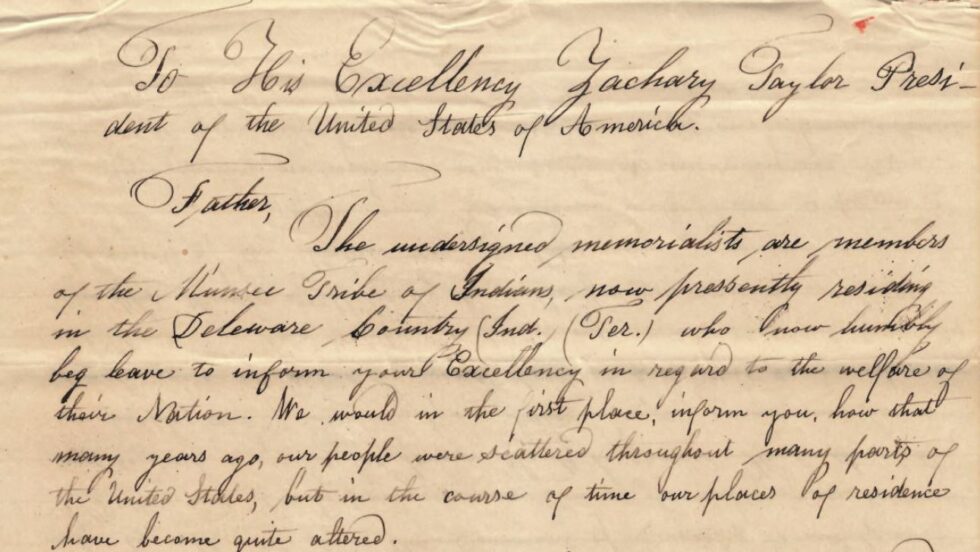 To His Excellency Zachary Taylor Presi-
dent of the United States of America.
Father,
The undersigned memorialists, are members
of the Munsee Tribe of Indians, now pressently residing
in the Deleware Country (Ind. (Ter.) who now humbly
beg leave to inform your Excellency in regard to the welfare of
their Nation. We would in the first place, inform you, how that
many years ago, our people were scattered throughout many parts of
the United States, but in the course of time our places of residence
have become quite altered.